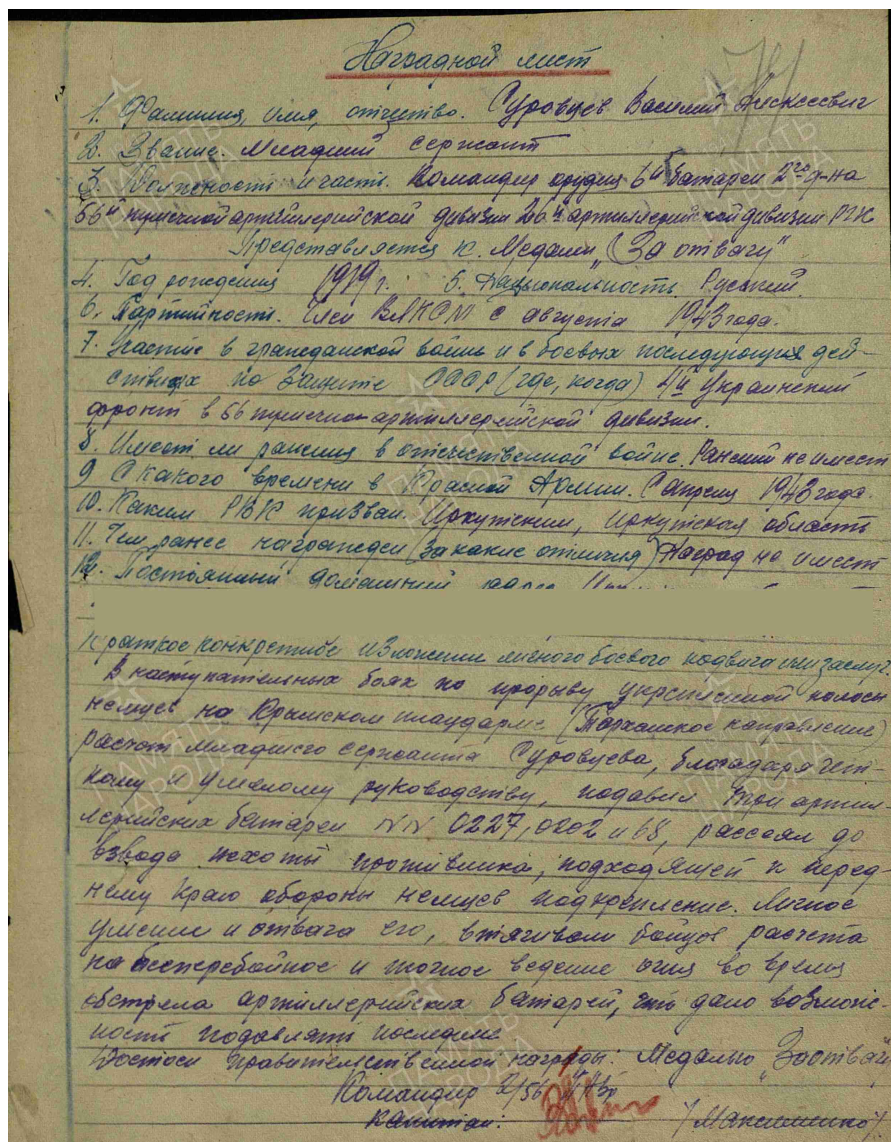 Наградной лист
1. Фамилия, имя, отчество. Суровцев Василий Алексеевич
2. Звание, Младший сержант
3. Должность и часть. Командир орудия 6й батареи 2го д-на
56й пушечной артиллерийской дивизии 26й артиллерийской дивизии РГК
Представляется к. Медали „За отвагу"
4. Год рождения 1919 г. 5. Национальность. Русский.
6. Партийность. Член ВЛКСМ с августа 1943 года.
7. Участие в гражданской войне и в боевых последующих дей-
ствиях по Защите СССР (где, когда) 4й Украинский
фронт в 56 пушечно-артиллерийской дивизии.
8. Имеет ли ранения в отечественной войне. Ранений не имеет
9 С какого времени в Красной Армии. С апреля 1943 года.
10. Каким РВК призван. Иркутским, Иркутская область
11. Чем ранее награжден (за какие отличия) Наград не имеет
12. Постоянный домашний адрес
Краткое конкретное изложение личного боевого подвига или заслуг.
В наступательных боях по прорыву укрепленной полосы
немцев на Крымском плацдарме (Тарханское направление)
расчет младшего сержанта Суровцева, благодаря чет-
кому и умелому руководству, подавил три артил-
лерийских батареи NN 0227, 0202 и 68, рассеял до
взвода пехоты противника, подходящей к перед-
нему краю обороны немцев подкрепление. Личное
умение и отвага его, втягивали бойцов расчета
на бесперебойное и точное ведение огня во время
обстрела артиллерийских батарей, что дало возмож-
ность подавлять последние
Достоин правительственной награды: Медалью „За отвагу"
Командир 2/56
капитан: /Максименко/